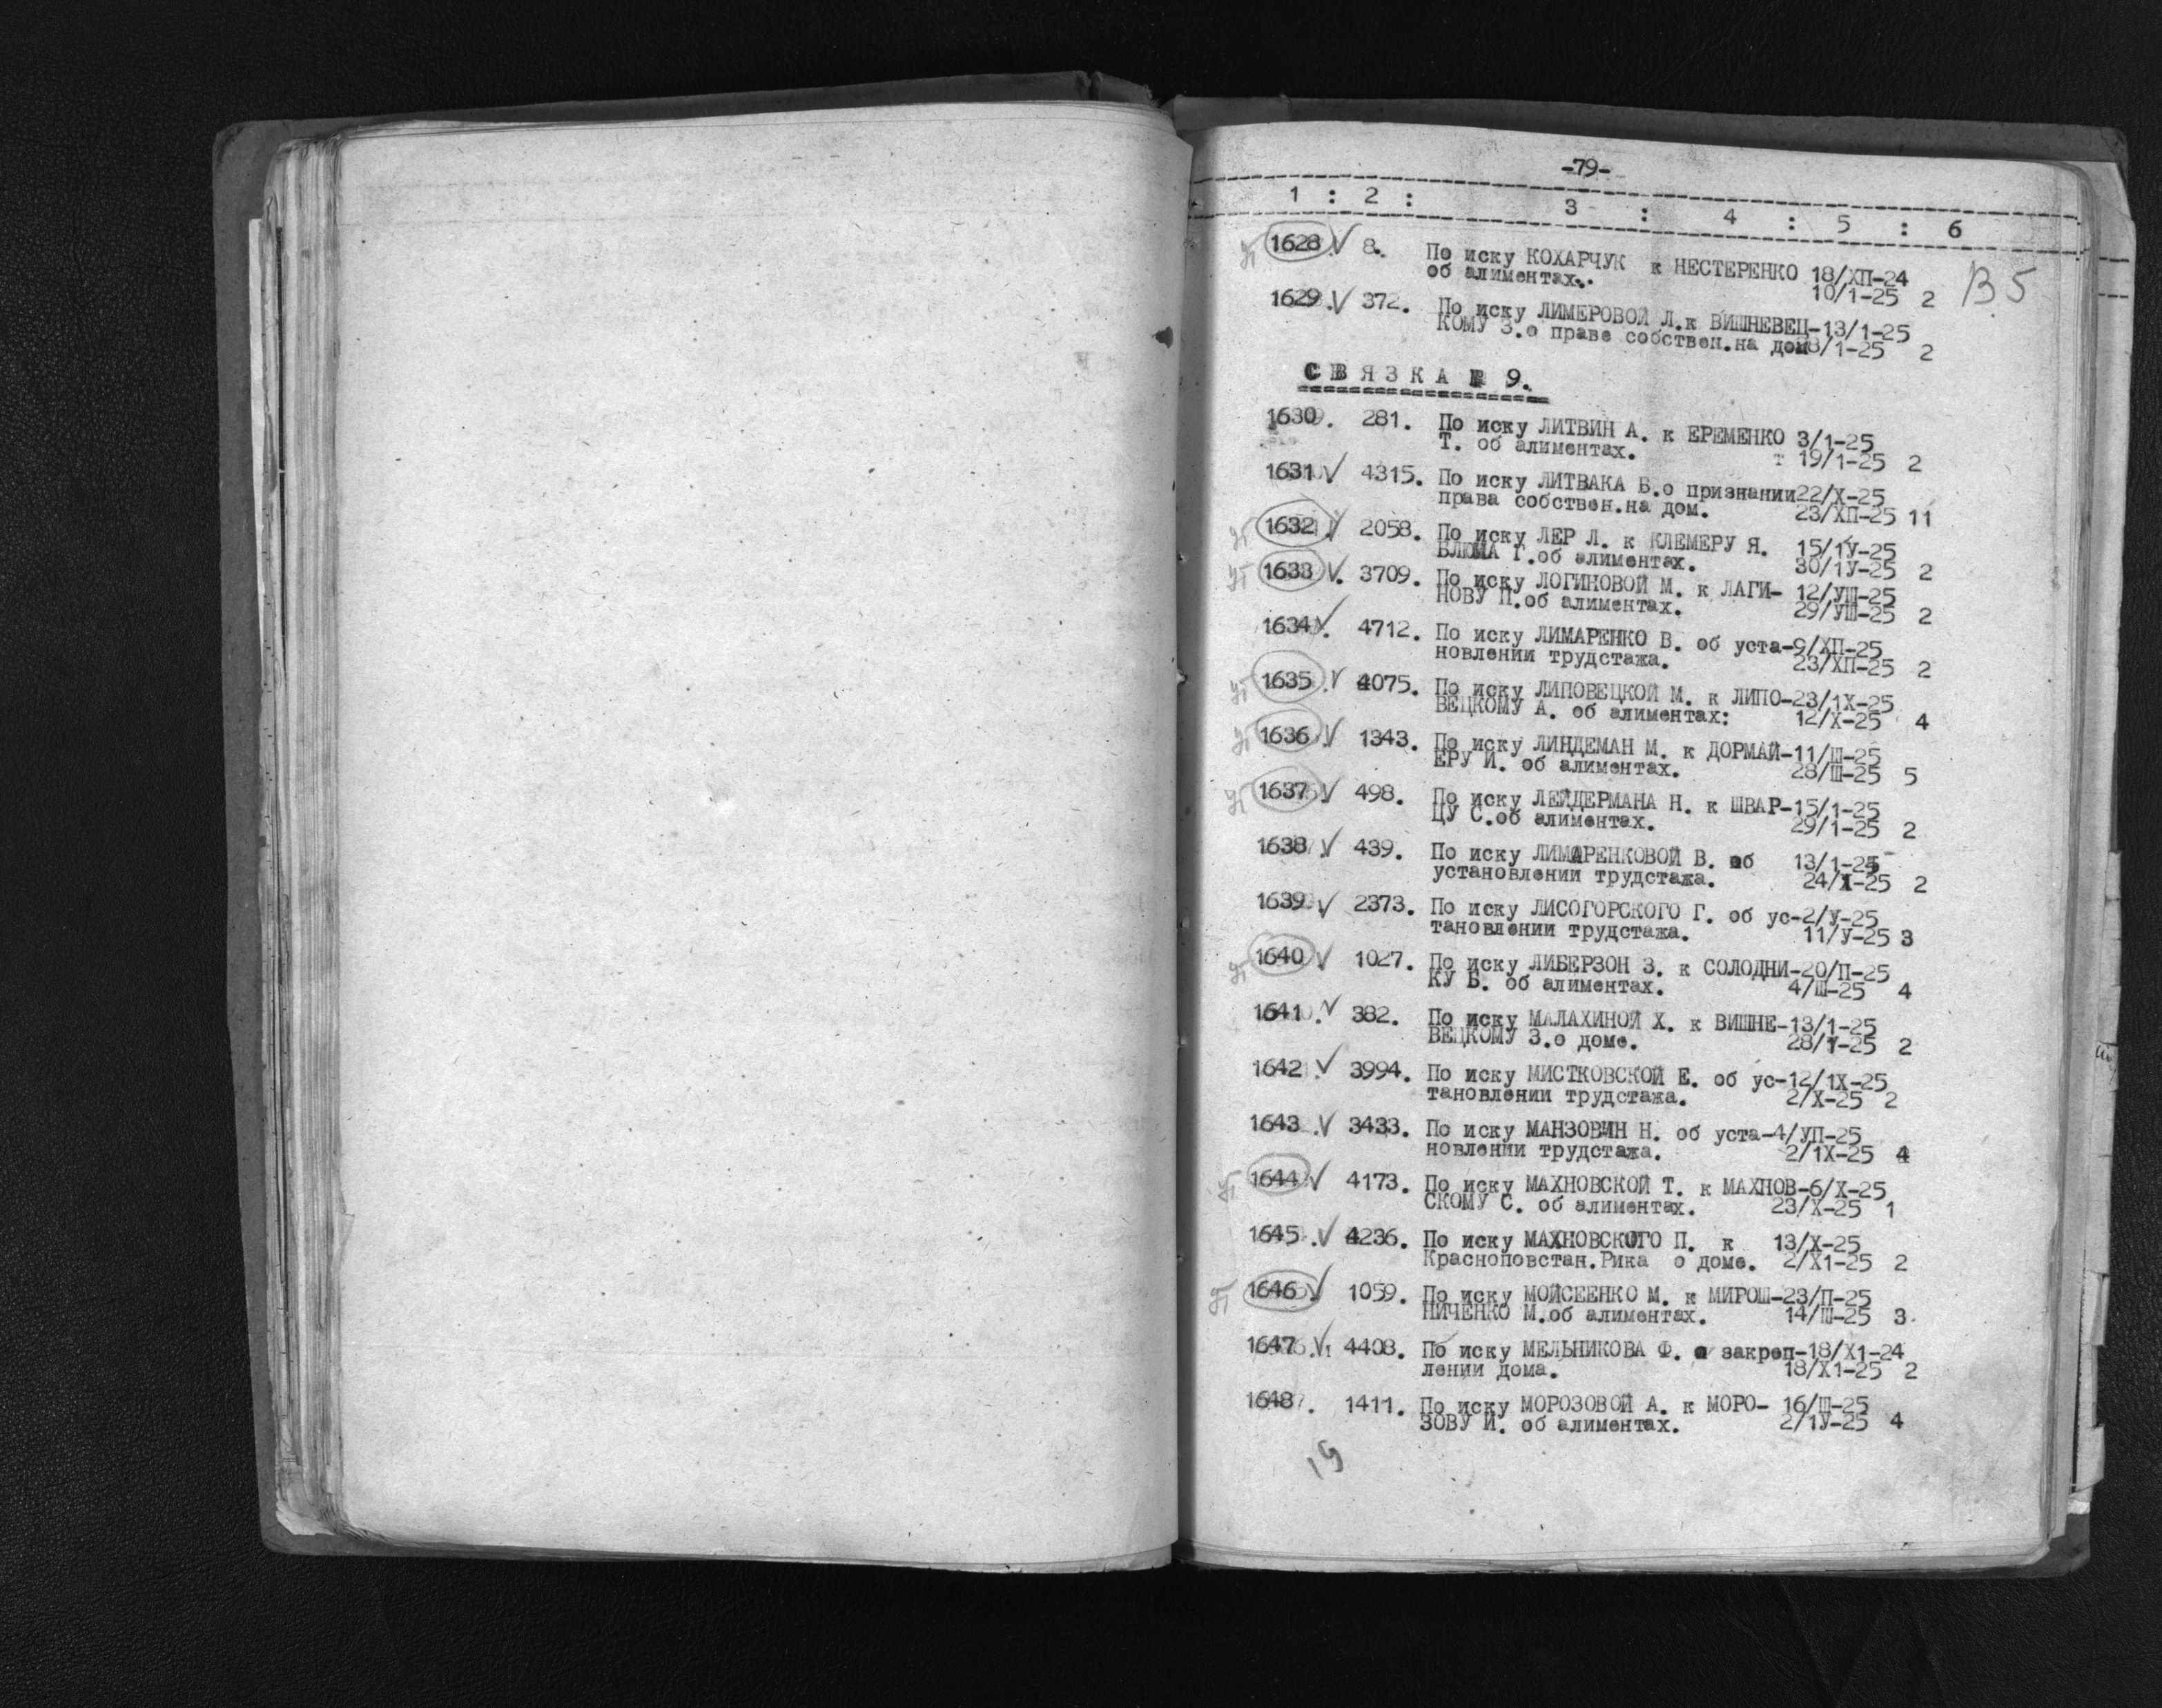 -79-
1 : 2 : 3 : 4 : 5 : 6
1628 V 8. По иску КОХАРЧУК к НЕСТЕРЕНКО 18/ХП-24
об алиментах. 10/1-25 2
В 5
1629. V 372. По иску ЛИМЕРОВОЙ Л.к ВИШНЕВЕЦ-13/1-25
КОМУ З.о праве собствен.на дом 8/1-25 2
С В Я З К А № 9.
1630. 281. По иску ЛИТВИН А. к ЕРЕМЕНКО 3/1-25
Т. об алиментах. 19/1-25 2
1631 V 4315. По иску ЛИТВАКА Б.о признании 22/Х-25
права собствен.на дом. 23/ХП-25 11
1632 V 2058. По иску ЛЕР Л. к КЛЕМЕРУ Я. 15/1У-25
БЛЮМА Г.об алиментах. 30/1У-25 2
1633 V. 3709. По иску ЛОГИНОВОЙ М. к ЛАГИ- 12/УШ-25
НОВУ П.об алиментах. 29/УШ-25 2
1634 V. 4712. По иску ЛИМАРЕНКО В. об уста-9/ХП-25
новлении трудстажа. 23/ХП-25 2
1635. V 4075. По иску ЛИПОВЕЦКОЙ М. к ЛИПО-23/1Х-25
ВЕЦКОМУ А. об алиментах: 12/Х-25 4
1636. V 1343. По иску ЛИНДЕМАН М. к ДОРМАЙ-11/Ш-25
ЕРУ И. об алиментах. 28/Ш-25 5
1637 V 498. По иску ЛЕЙДЕРМАНА Н. к ШВАР-15/1-25
ЦУ С.об алиментах. 29/1-25 2
1638. V 439. По иску ЛИМАРЕНКОВОЙ В. об 13/1-25
установлении трудстажа. 24/Х-25 2
1639. V 2373. По иску ЛИСОГОРСКОГО Г. об ус-2/У-25
тановлении трудстажа. 11/У-25 3
1640 V 1027. По иску ЛИБЕРЗОН З. к СОЛОДНИ-20/П-25
КУ Б. об алиментах. 4/Ш-25 4
1641. V 382. По иску МАЛАХИНОЙ Х. к ВИШНЕ-13/1-25
ВЕЦКОМУ З.о доме. 28/У-25 2
1642. V 3994. По иску МИСТКОВСКОЙ Е. об ус-12/1Х-25
тановлении трудстажа. 2/Х-25 2
1643. V 3433. По иску МАНЗОВИН Н. об уста-4/УП-25
новлении трудстажа. 2/1Х-25 4
1644 V 4173. По иску МАХНОВСКОЙ Т. к МАХНОВ-6/Х-25
СКОМУ С. об алиментах. 23/Х-25 1
1645. V 4236. По иску МАХНОВСКОГО П. к 13/Х-25
Красноповстан.Рика о доме. 2/Х1-25 2
1646 V 1059. По иску МОЙСЕЕНКО М. к МИРОШ-23/П-25
НИЧЕНКО М.об алиментах. 14/Ш-25 3.
1647. V 4408. По иску МЕЛЬНИКОВА Ф. о закреп-18/Х1-24
лении дома. 18/Х1-25 2
1648. 1411. По иску МОРОЗОВОЙ А. к МОРО- 16/Ш-25
ЗОВУ И. об алиментах. 2/1У-25 4
19